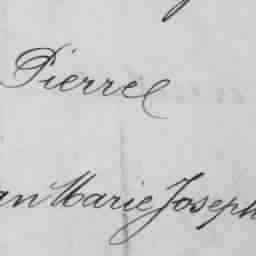 Pierrel
an Marie Joseph